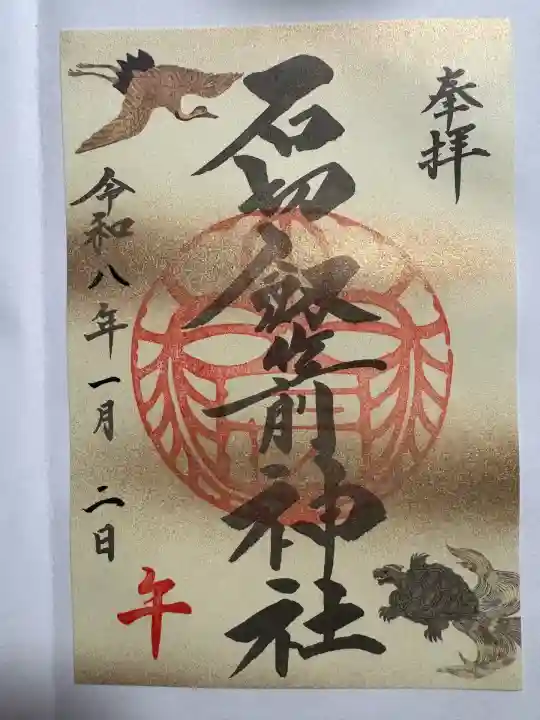 奉拝
石切劔箭神社
令和八年一月二日
午